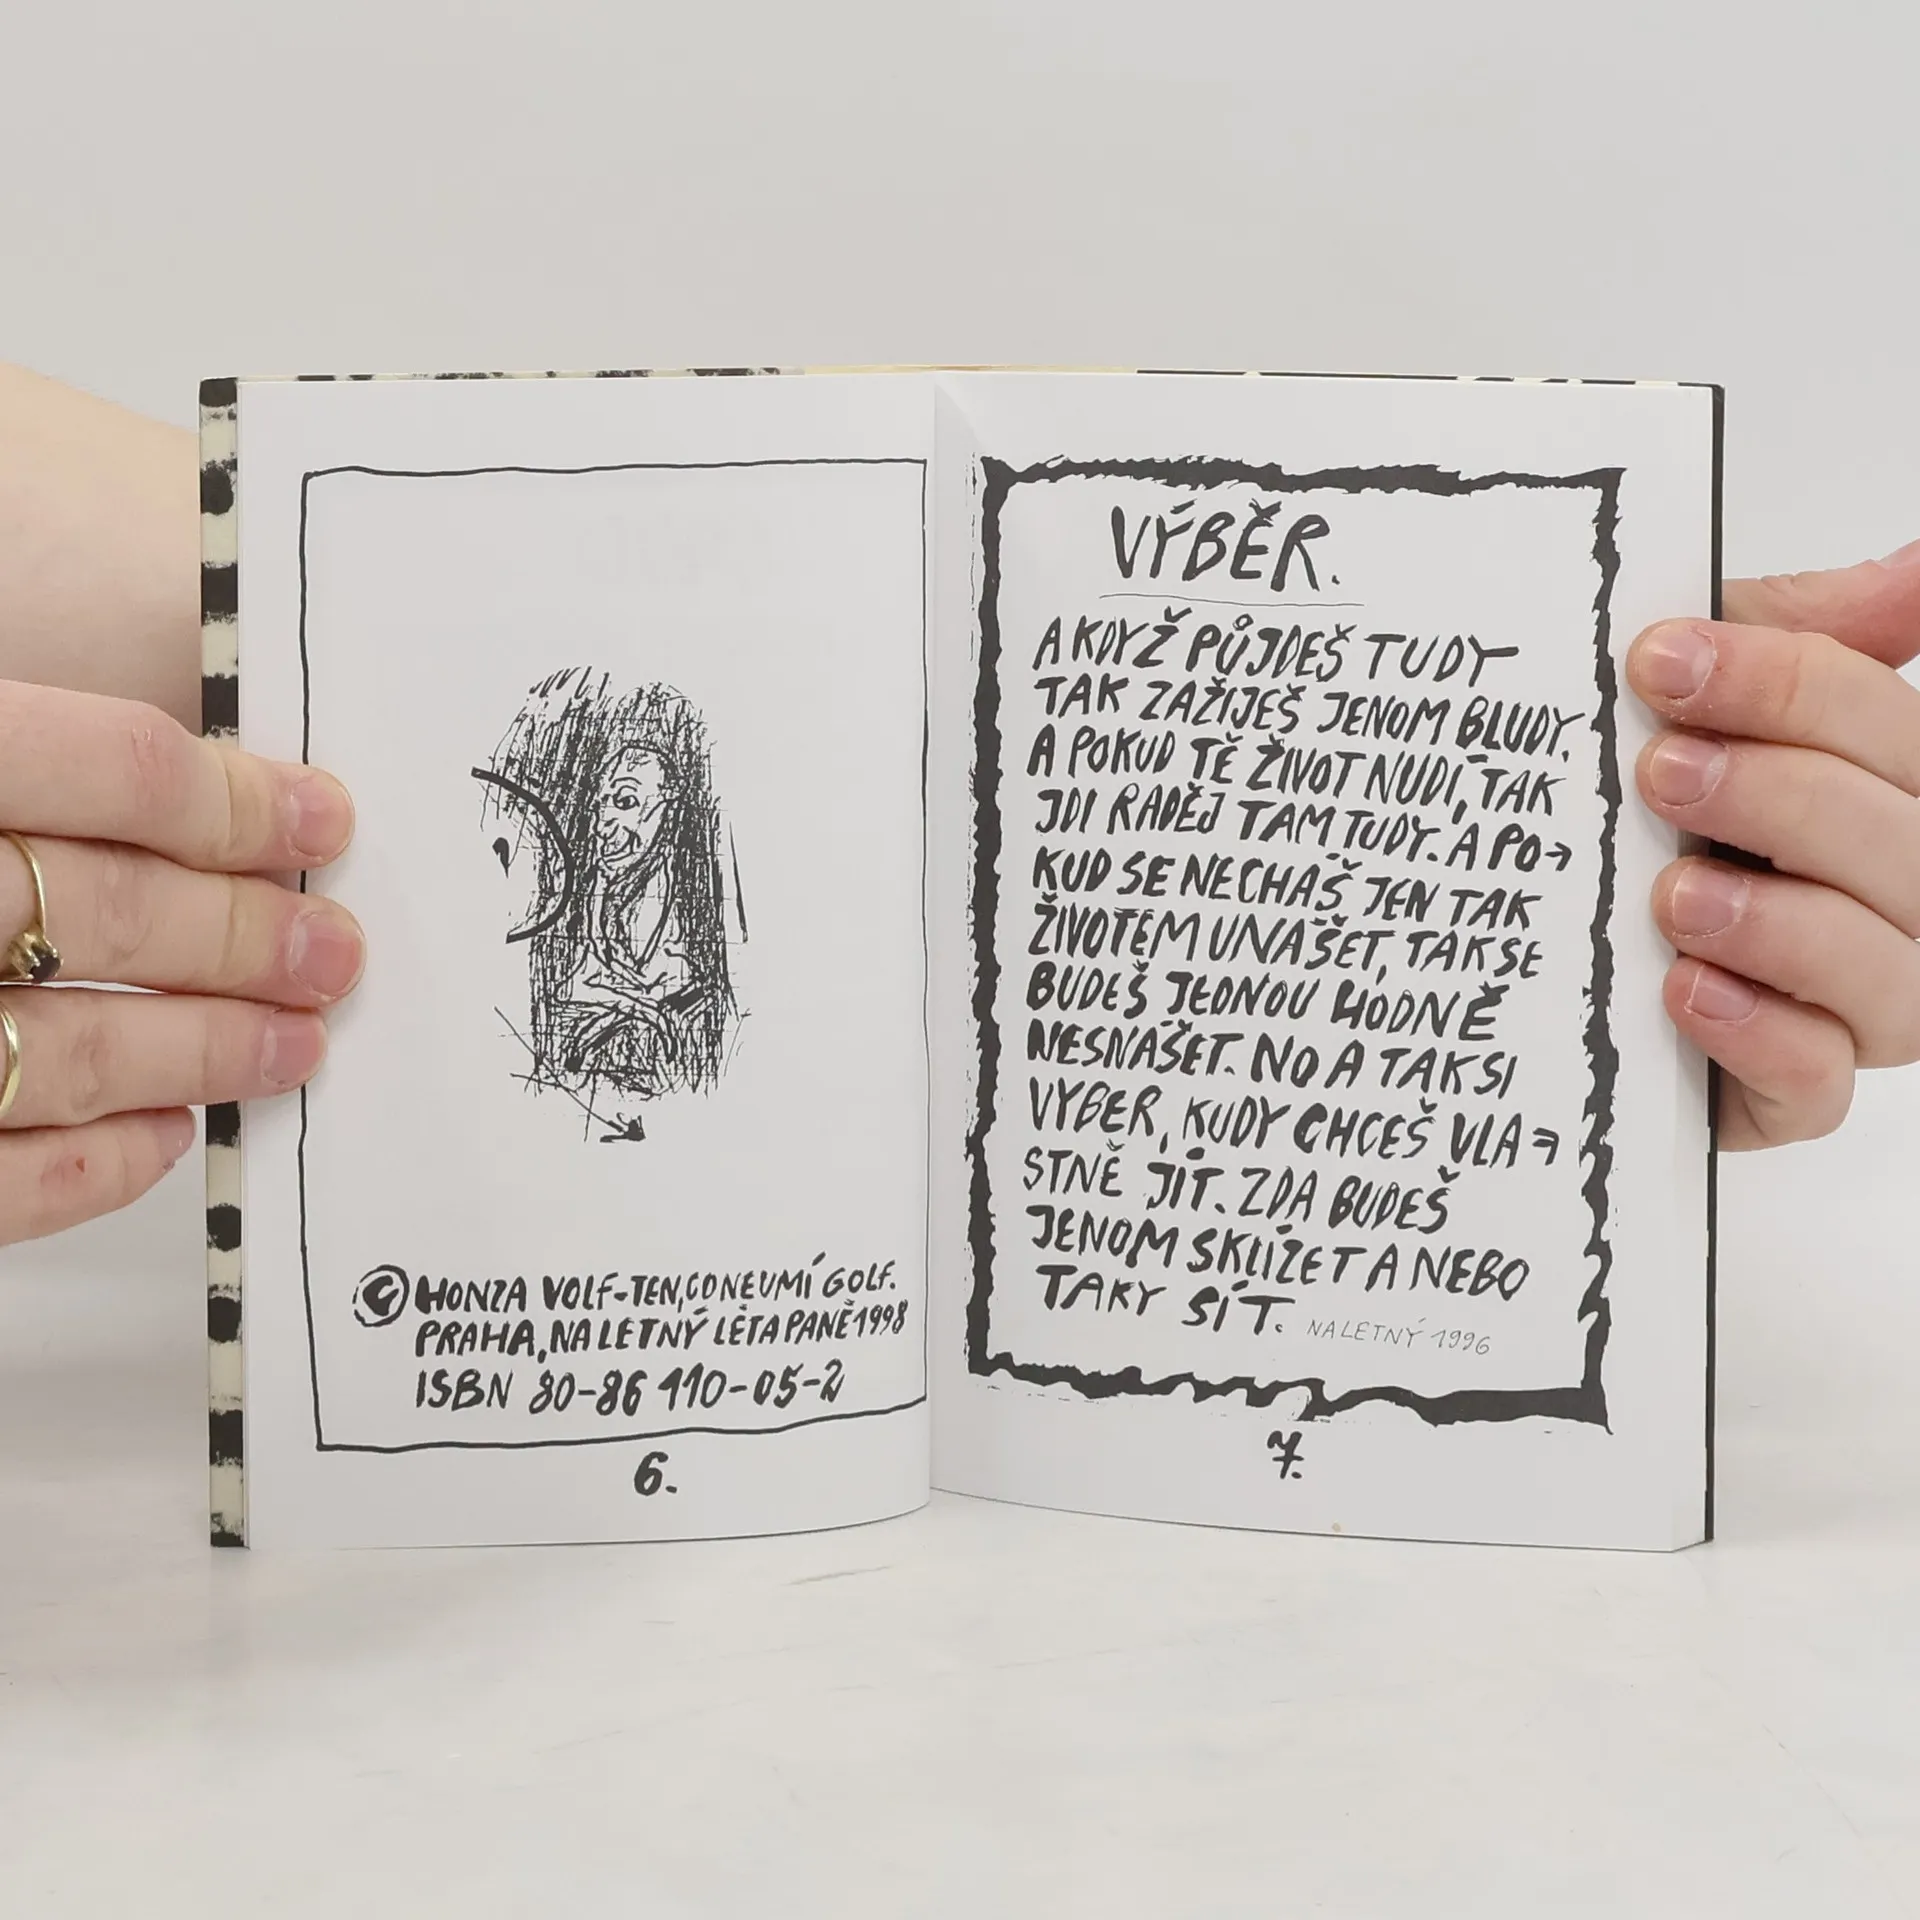 © HONZA VOLF-TEN, CO NEUMÍ GOLF.
PRAHA, NA LETNÝ LÉTA PANĚ 1998
ISBN 80-86 110-05-2
6.
VÝBĚR.
A KDYŽ PŮJDEŠ TUDY
TAK ZAŽIJEŠ JENOM BLUDY.
A POKUD TĚ ŽIVOT NUDÍ, TAK
JDI RADĚJ TAMTUDY. A PO→
KUD SE NECHÁŠ JEN TAK
ŽIVOTEM UNÁŠET, TAK SE
BUDEŠ JEDNOU HODNĚ
NESNÁŠET. NO A TAK SI
VYBER, KUDY CHCEŠ VLA→
STNĚ JÍT. ZDA BUDEŠ
JENOM SKLÍZET A NEBO
TAKY SÍT. NA LETNÝ 1996
7.